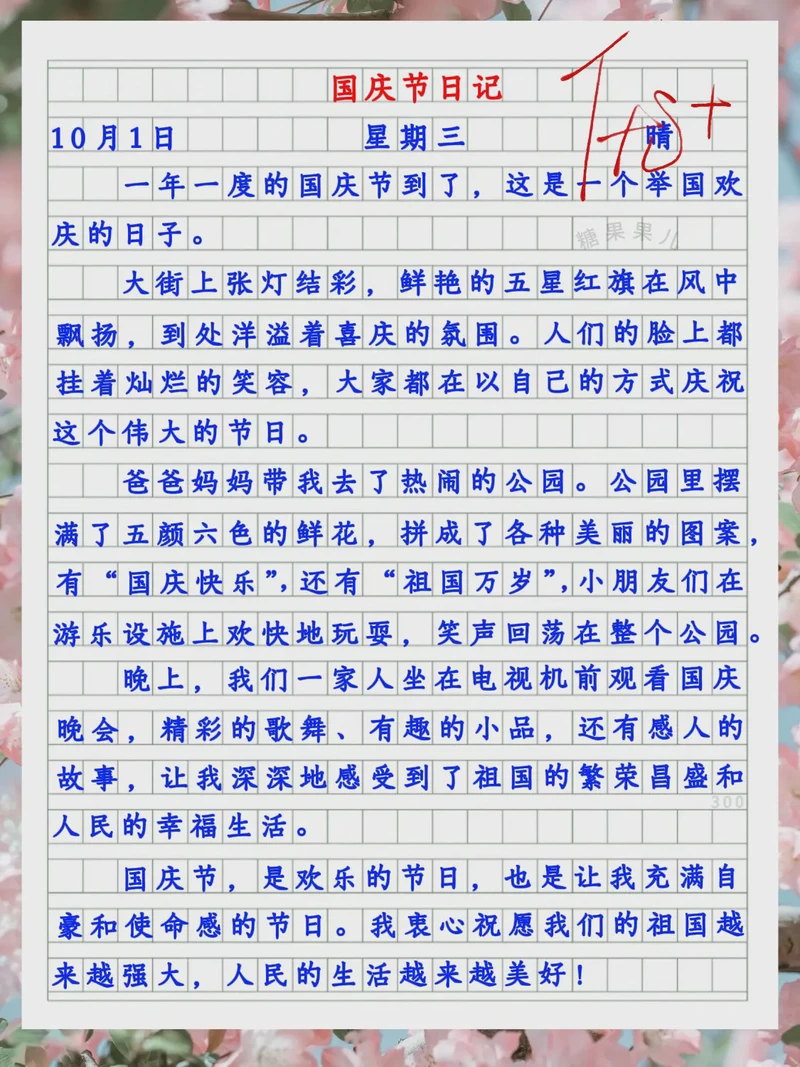 国庆节日记
10月1日 星期三 晴
一年一度的国庆节到了，这是一个举国欢
庆的日子。
糖果果儿
大街上张灯结彩，鲜艳的五星红旗在风中
飘扬，到处洋溢着喜庆的氛围。人们的脸上都
挂着灿烂的笑容，大家都在以自己的方式庆祝
这个伟大的节日。
爸爸妈妈带我去了热闹的公园。公园里摆
满了五颜六色的鲜花，拼成了各种美丽的图案，
有“国庆快乐”，还有“祖国万岁”，小朋友们在
游乐设施上欢快地玩耍，笑声回荡在整个公园。
晚上，我们一家人坐在电视机前观看国庆
晚会，精彩的歌舞、有趣的小品，还有感人的
故事，让我深深地感受到了祖国的繁荣昌盛和
300
人民的幸福生活。
国庆节，是欢乐的节日，也是让我充满自
豪和使命感的节日。我衷心祝愿我们的祖国越
来越强大，人民的生活越来越美好！